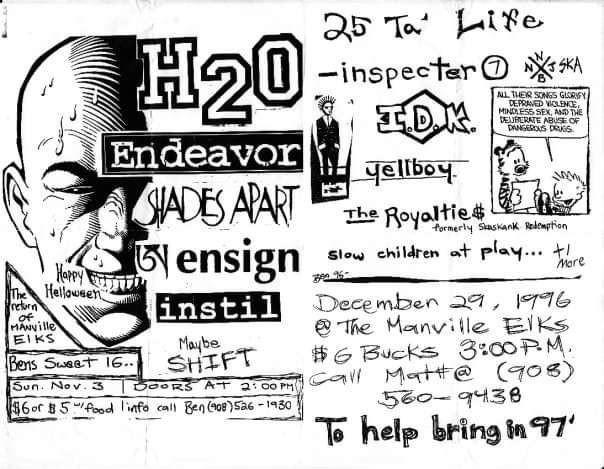 H2O
Endeavor
SHADES APART
ensign
instil
Happy
Helloween
The
return
OF
MANVILLE
ElKS
Maybe
SHIFT
Bens Sweet 16..
Sun. Nov. 3 | DOORS AT 2:00 PM
$6 or $5 w/ food | info call Ben (908) 526-1930
25 Ta' Life
-inspecter 7
NNWB NJ SKA
I.D.K.
ALL THEIR SONGS GLORIFY
DEPRAVED VIOLENCE,
MINDLESS SEX, AND THE
DELIBERATE ABUSE OF
DANGEROUS DRUGS.
yellboy.
The Royaltie$
-formerly Skaskank Redemption
Slow children at play... +1
More
Ben 96-
December 29, 1996
@ The Manville Elks
$6 Bucks 3:00 P.M.
Call Matt@ (908)
560-9438
To help bring in 97'